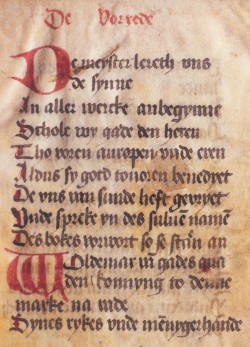 De Vorrede
De meyster lereth vns
de synne
In aller wercke anbegynne
Schole wy gade den heren
Tho voren anropen vnde eren
Aldus sy god touoren benedyet
De vns van sunde heft gevryet
Vnde spreke yn des suluē namē
Des bokes vorwort so se stān an
Woldemar vā gades gna
den konnyng to denne
marke na rade
Synes rykes vnde mēnygerhande